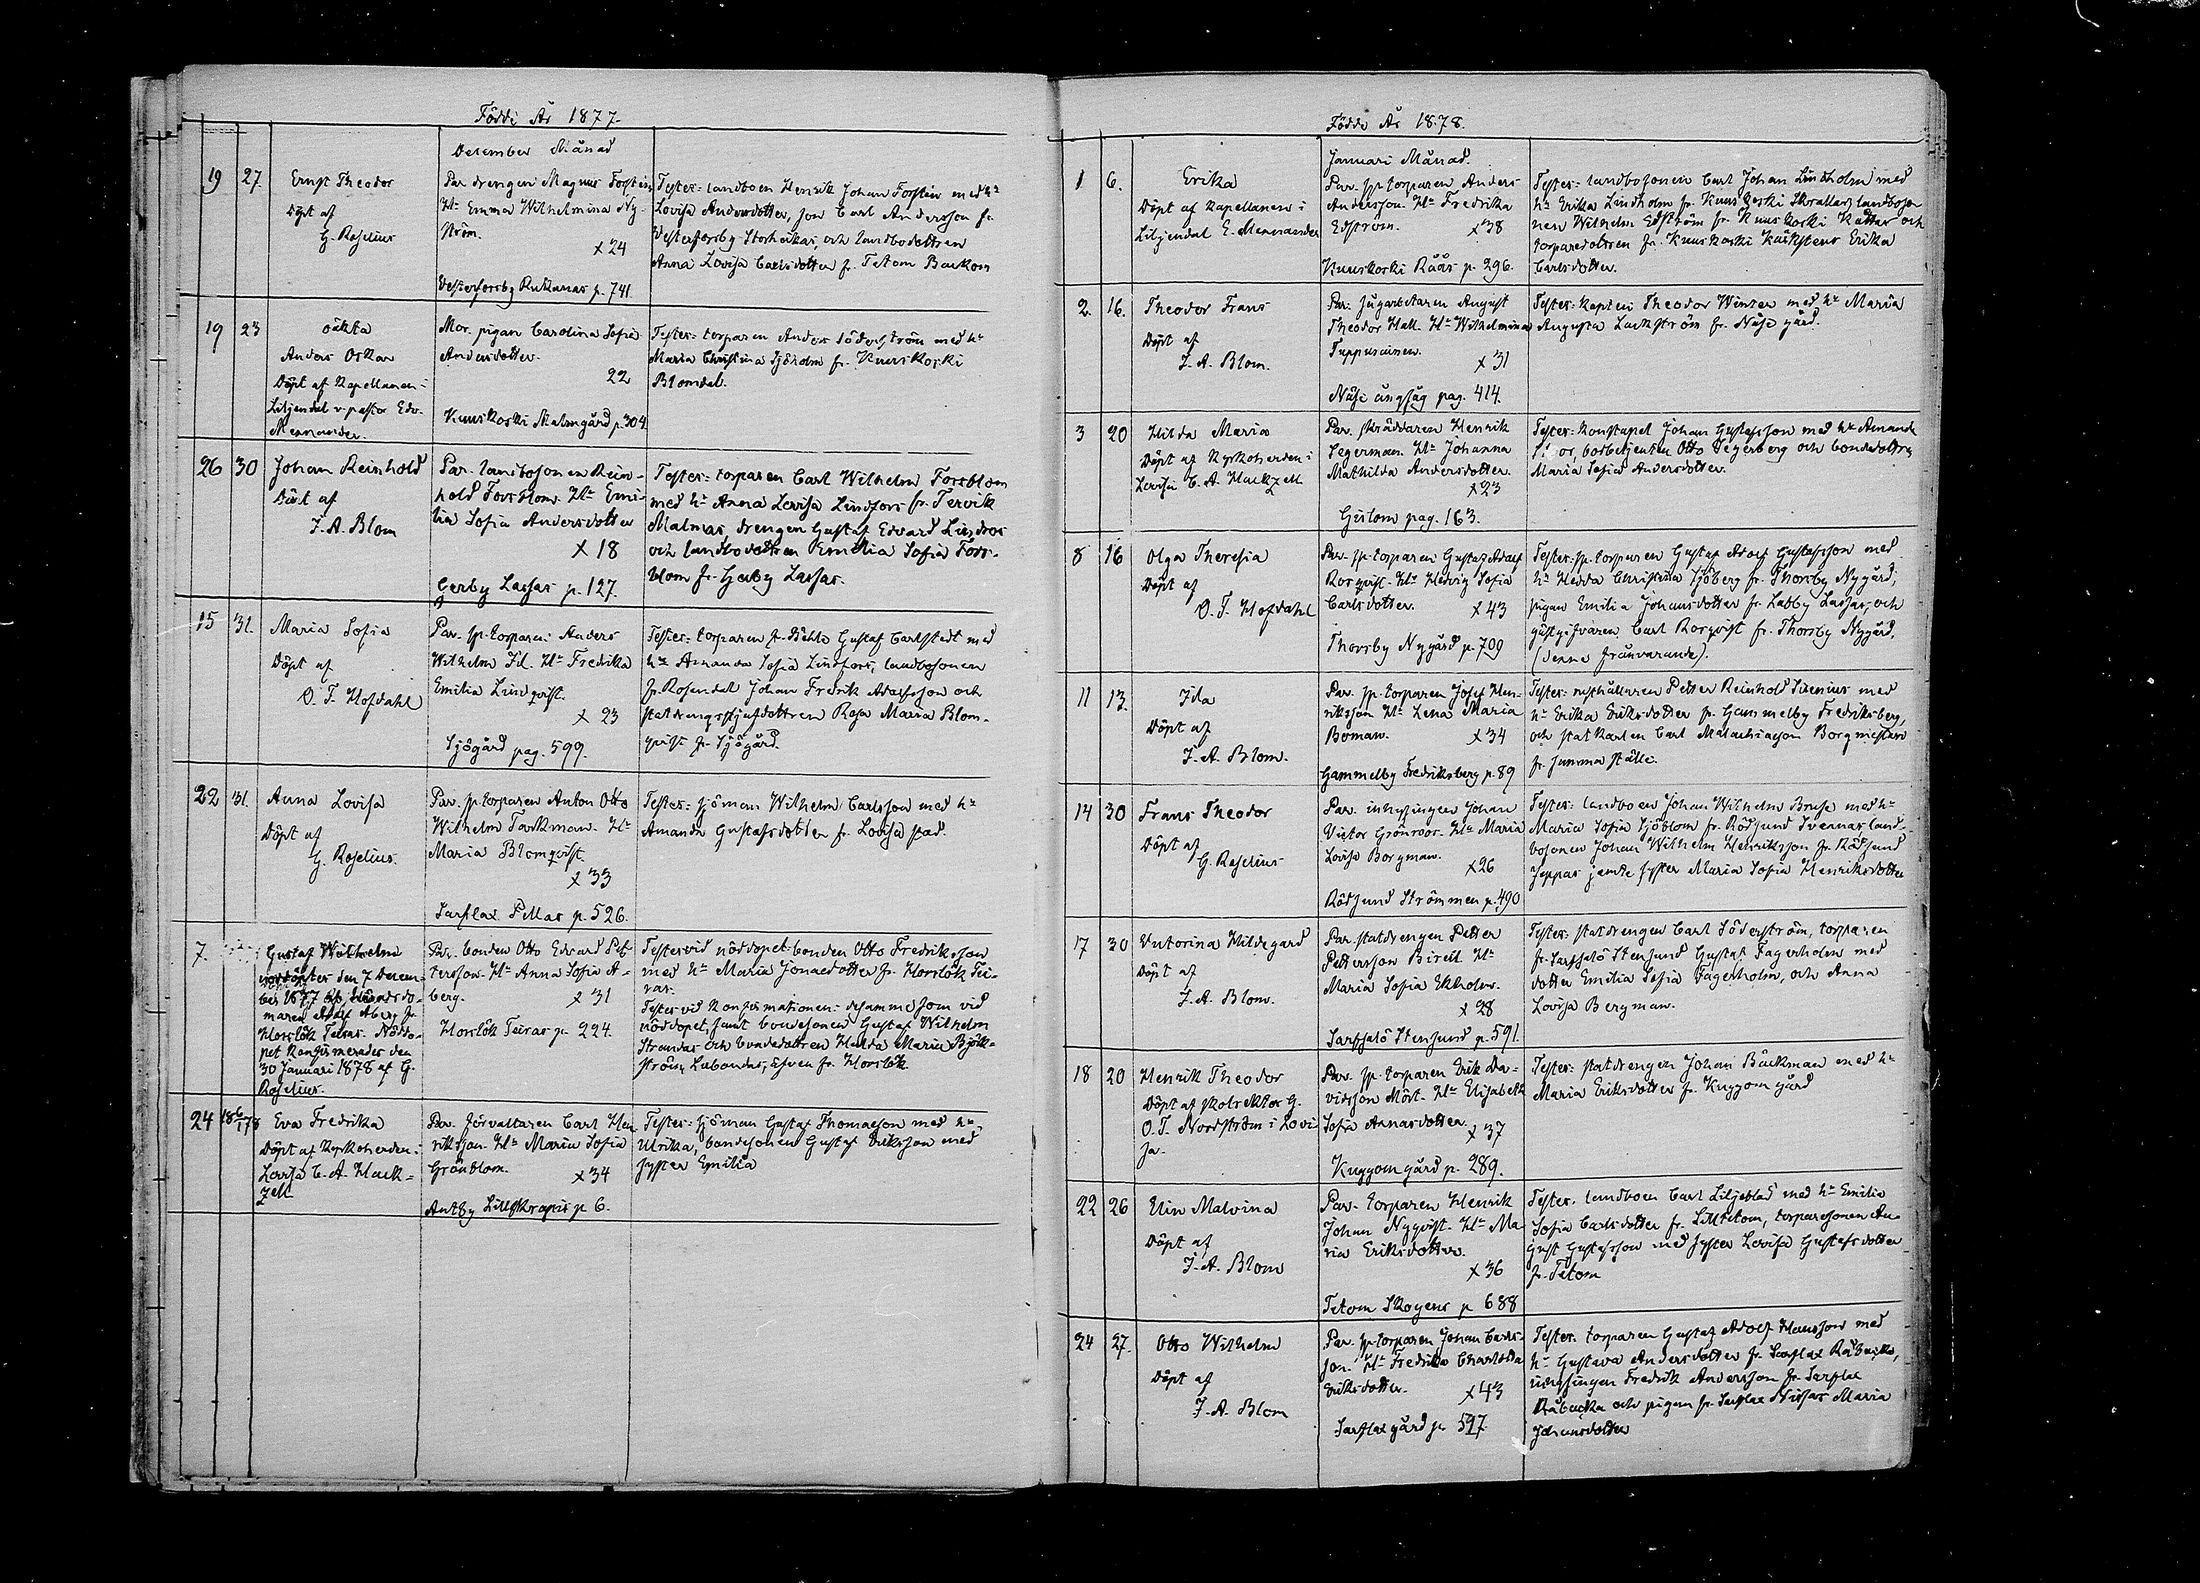 Födde År 1877.
December Månad
19 27. Ernst Theodor
Döpt af
G. Roselius
Par. drengen Magnus Forstein
H:u Emma Wilhelmina Ny-
ström.
x 24
Vesterforsby Rukanas p. 741.
Tester: landboen Henrik Johan Forstein med h:u
Lovisa Andersdotter, son Carl Andersson fr.
Vesterforsby Storheikas, och landbodottren
Anna Lovisa Carlsdotter fr. Tetom Backom
19 23 oäkta
Anders Oskar
Döpt af Kapellanen i
Liljendal v. pastor Edv.
Mennander.
Mor. pigan Carolina Sofia
Andersdotter.
22
Kuuskoski Malmgård p. 304.
Tester: torparen Anders Söderström med h:u
Maria Christina Sjöholm fr. Kuuskoski
Blomdal.
26 30 Johan Reinhold
Döpt af
J. A. Blom
Par. landbosonen Rein-
hold Forsblom. H:u Emi-
lia Sofia Andersdotter
x 18
Gerby Lassas p. 127.
Tester: torparen Carl Wilhelm Forsblom
med h:u Anna Lovisa Lindfors fr. Tervik
Malmas, drengen Gustaf Edvard Lindroos
och landbodottren Emilia Sofia Fors-
blom fr. Gerby Lassas.
15 31. Maria Sofia
Döpt af
O. F. Hofdahl
Par. sp. torparen Anders
Wilhelm Fil. H:u Fredrika
Emilia Lindqvist.
x 23
Sjögård pag. 599.
Tester: torparen fr. Gustaf Carlstedt med
h:u Amanda Sofia Lindfors, landbosonen
fr. Rosendal Johan Fredrik Adolfsson och
statdrengsstjufdottren Rosa Maria Blom-
qvist fr. Sjögård.
22 31. Anna Lovisa
Döpt af
G. Roselius.
Par. sp. torparen Anton Otto
Wilhelm Tarkman. H:u
Maria Blomqvist.
x 33
Sarflax Pellas p. 526.
Tester: sjöman Wilhelm Carlsson med h:u
Amanda Gustafsdotter fr. Lovisa stad.
7. Gustaf Wilhelm
nöddöpter den 7 Decem-
ber 1877 af häradsdo-
maren Adolf Åberg fr.
Horslök Teiras. Nöddo-
pet konfirmerades den
30 Januari 1878 af G.
Roselius.
Par. bonden Otto Edvard Pet-
tersson. H:u Anna Sofia Å-
berg.
x 31
Horslök Teiras p. 224.
Tester vid nöddopet: bonden Otto Fredriksson
med h:u Maria Jonaedotter fr. Horslök Tei-
ras.
Tester vid konfirmationen: desamme som vid
nöddopet, samt bondesonen Gustaf Wilhelm
Strandas och bondedottren Hulda Maria Björk-
ström Labandas, äfven fr. Horslök.
24 18 6/1 78 Eva Fredrika
Döpt af Kyrkoherden i
Lovisa C. A. Hack-
zell
Par. förvaltaren Carl Hen-
riksson. H:u Maria Sofia
Grönblom.
x 34
Antby Lillskrapis p 6.
Tester: sjöman Gustaf Thomaeson med h:u
Ulrika, bondesonen Gustaf Eriksson med
syster Emilia
Födde År 1878.
Januari Månad.
1 6. Erika
Döpt af Kapellanen i
Liljendal E. Mennander
Par. sp. torparen Anders
Andersson. H:u Fredrika
Edström.
x 38
Kuuskoski Räärs p. 296.
Tester: landbosonen Carl Johan Lindholm med
h:u Erika Lindholm fr. Kuuskoski Skrallas, landboso-
nen Wilhelm Edström fr. Kuuskoski Kattas och
torparedottren fr. Kuuskoski Erika
Carlsdotter.
2. 16. Theodor Frans
Döpt af
J. A. Blom.
Par. sågarbetaren August
Theodor Hall. H:u Wilhelmina
Tuppurainen.
x 31
Näse ångsåg pag. 414.
Tester: kapten Theodor Winter med h:u Maria
Augusta Lackström fr. Näse gård.
3 20 Hilda Maria
Döpt af Kyrkoherden i
Lovisa C. A. Hackzell
Par. skräddaren Henrik
Segerman. H:u Johanna
Mathilda Andersdotter.
x 23
Gislom pag. 163.
Tester: konstapel Johan Gustafsson med h:u Amanda
bodbetjenten Otto Segerberg och bondedottren
Maria Sofia Andersdotter.
8 16 Olga Theresia
Döpt af
O. F. Hofdahl
Par. sp. torparen Gustaf Adolf
Rorqvist. H:u Hedvig Sofia
Carlsdotter.
x 43
Thorsby Nygård p. 709
Tester: sp. torparen Gustaf Adolf Gustafsson med
h:u Hedda Christina Sjöberg fr. Thorsby Nygård,
pigan Emilia Johansdotter fr. Labby Lassas, och
gästgifvaren Carl Rorqvist fr. Thorsby Nygård,
(denne frånvarande).
11 13. Ida
Döpt af
J. A. Blom.
Par. sp. torparen Josef Hen-
riksson H:u Lena Maria
Boman.
x 34
Gammelby Fredriksberg p. 89
Tester: rusthållaren Petter Reinhold Sirenius med
h:u Erika Eriksdotter fr. Gammelby Fredriksberg,
och statkarlen Carl Malachiaeson Borgmästars
fr. samma ställe.
14 30 Frans Theodor
Döpt af
G. Roselius
Par. inhysingen Johan
Victor Grönroos. H:u Maria
Lovisa Borgman.
x 26
Rödsund Strömmen p. 490
Tester: landboen Johan Wilhelm Bruse med h:u
Maria Sofia Sjöblom fr. Rödsund Svennas, land-
bosonen Johan Wilhelm Henriksson fr. Rödsund
Jeppas jemte syster Maria Sofia Henriksdotter
17 30 Victorina Hildegard
Döpt af
J. A. Blom.
Par. statdrengen Petter
Pettersson Birell H:u
Maria Sofia Ekholm.
x 28
Sarfsalö Stensund p. 591.
Tester: statdrengen Carl Söderström, torparen
fr. Sarfsalö Stensund Gustaf Fagerholm med
dotter Emilia Sofia Fagerholm, och Anna
Lovisa Bergman.
18 20 Henrik Theodor
Döpt af skolrektor G.
O. T. Nordström i Lovi-
sa.
Par. sp. torparen Erik Da-
vidsson Mört. H:u Elisabeth
Sofia Annasdotter.
x 37
Kuggom gård p. 289.
Tester: statdrengen Johan Bäckman med h:u
Maria Eriksdotter fr. Kuggom gård
22 26 Elin Malvina
Döpt af
J. A. Blom
Par. torparen Henrik
Johan Nyqvist. H:u Ma-
ria Eriksdotter.
x 36
Tetom Skogens p 688
Tester. landboen Carl Liljeblad med h:u Emilia
Sofia Carlsdotter fr. Lilltetom, torparesonen Au-
gust Gustafsson med syster Lovisa Gustafsdotter
fr. Tetom
24 27. Otto Wilhelm
Döpt af
J. A. Blom
Par. sp. torparen Johan Carls-
son. H:u Fredrika Charlotta
Eriksdotter.
x 43
Sarflax gård p. 597.
Tester. torparen Gustaf Adolf Hansson med
h:u Gustava Andersdotter fr. Sarflax Råbacka,
inhysingen Fredrik Andersson fr. Sarflax
Råbacka och pigan fr. Sarflax Nissas Maria
Johansdotter